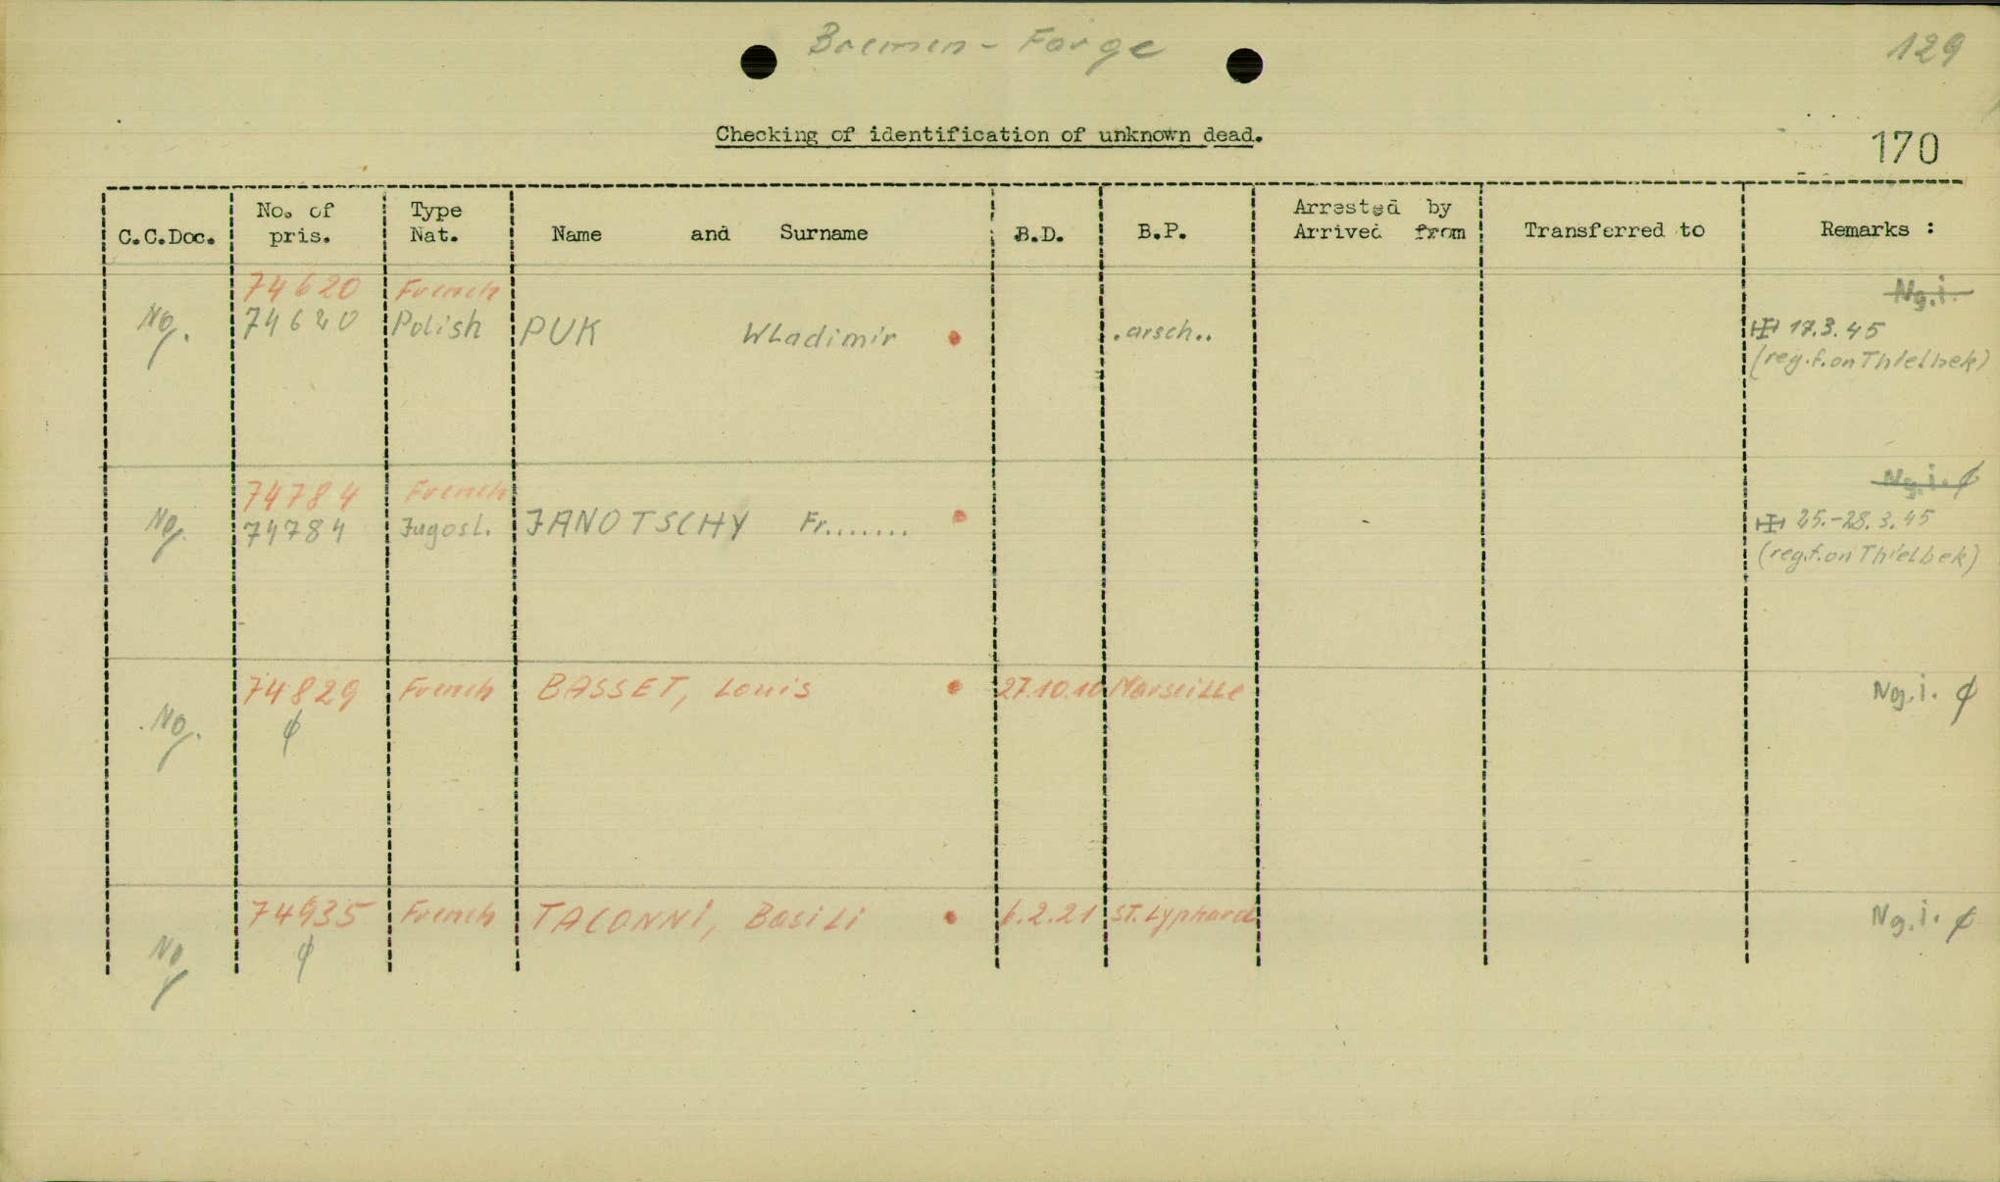 Bremen - Farge
129
Checking of identification of unknown dead.
170
C.C.Doc. No. of pris. Type Nat. Name and Surname B.D. B.P. Arrested by Arrived from Transferred to Remarks :
74620 French Ng.i.
No. 74620 Polish PUK Wladimir .arsch.. 17.3.45
(reg.f.on Thielbek)
74784 French Ng.i. ϕ
No. 74784 Jugosl. JANOTSCHY Fr....... 25.-28.3.45
(reg.f.on Thielbek)
74829 French BASSET, Louis 27.10.10 Marseille Ng.i. ϕ
No. ϕ
74935 French TACONNI, Basili 6.2.21 ST. Lyphard Ng.i. ϕ
No ϕ